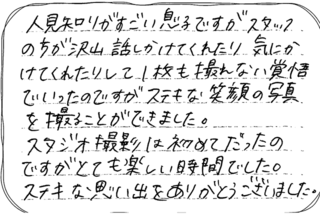 人見知りがすごい息子ですがスタッフ
の方が沢山話しかけてくれたり 気にか
けてくれたりして1枚も撮れない覚悟
でいったのですがステキな笑顔の写真
を撮ることができました。
スタジオ撮影は初めてだったの
ですがとても楽しい時間でした。
ステキな思い出をありがとうございました。